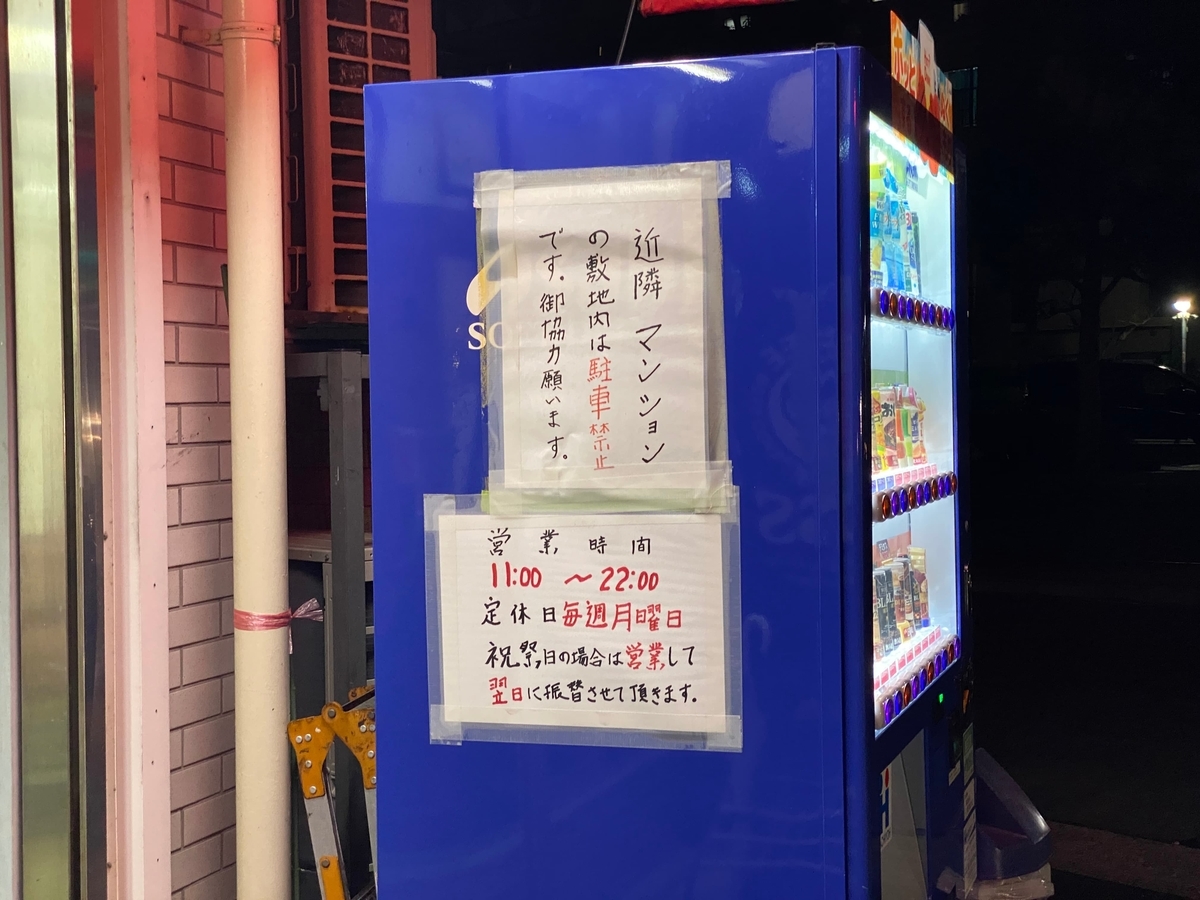 近隣 マンション
の敷地内は駐車禁止
です。御協力願います。
営業時間
11:00 〜 22:00
定休日毎週月曜日
祝祭日の場合は営業して
翌日に振替させて頂きます。